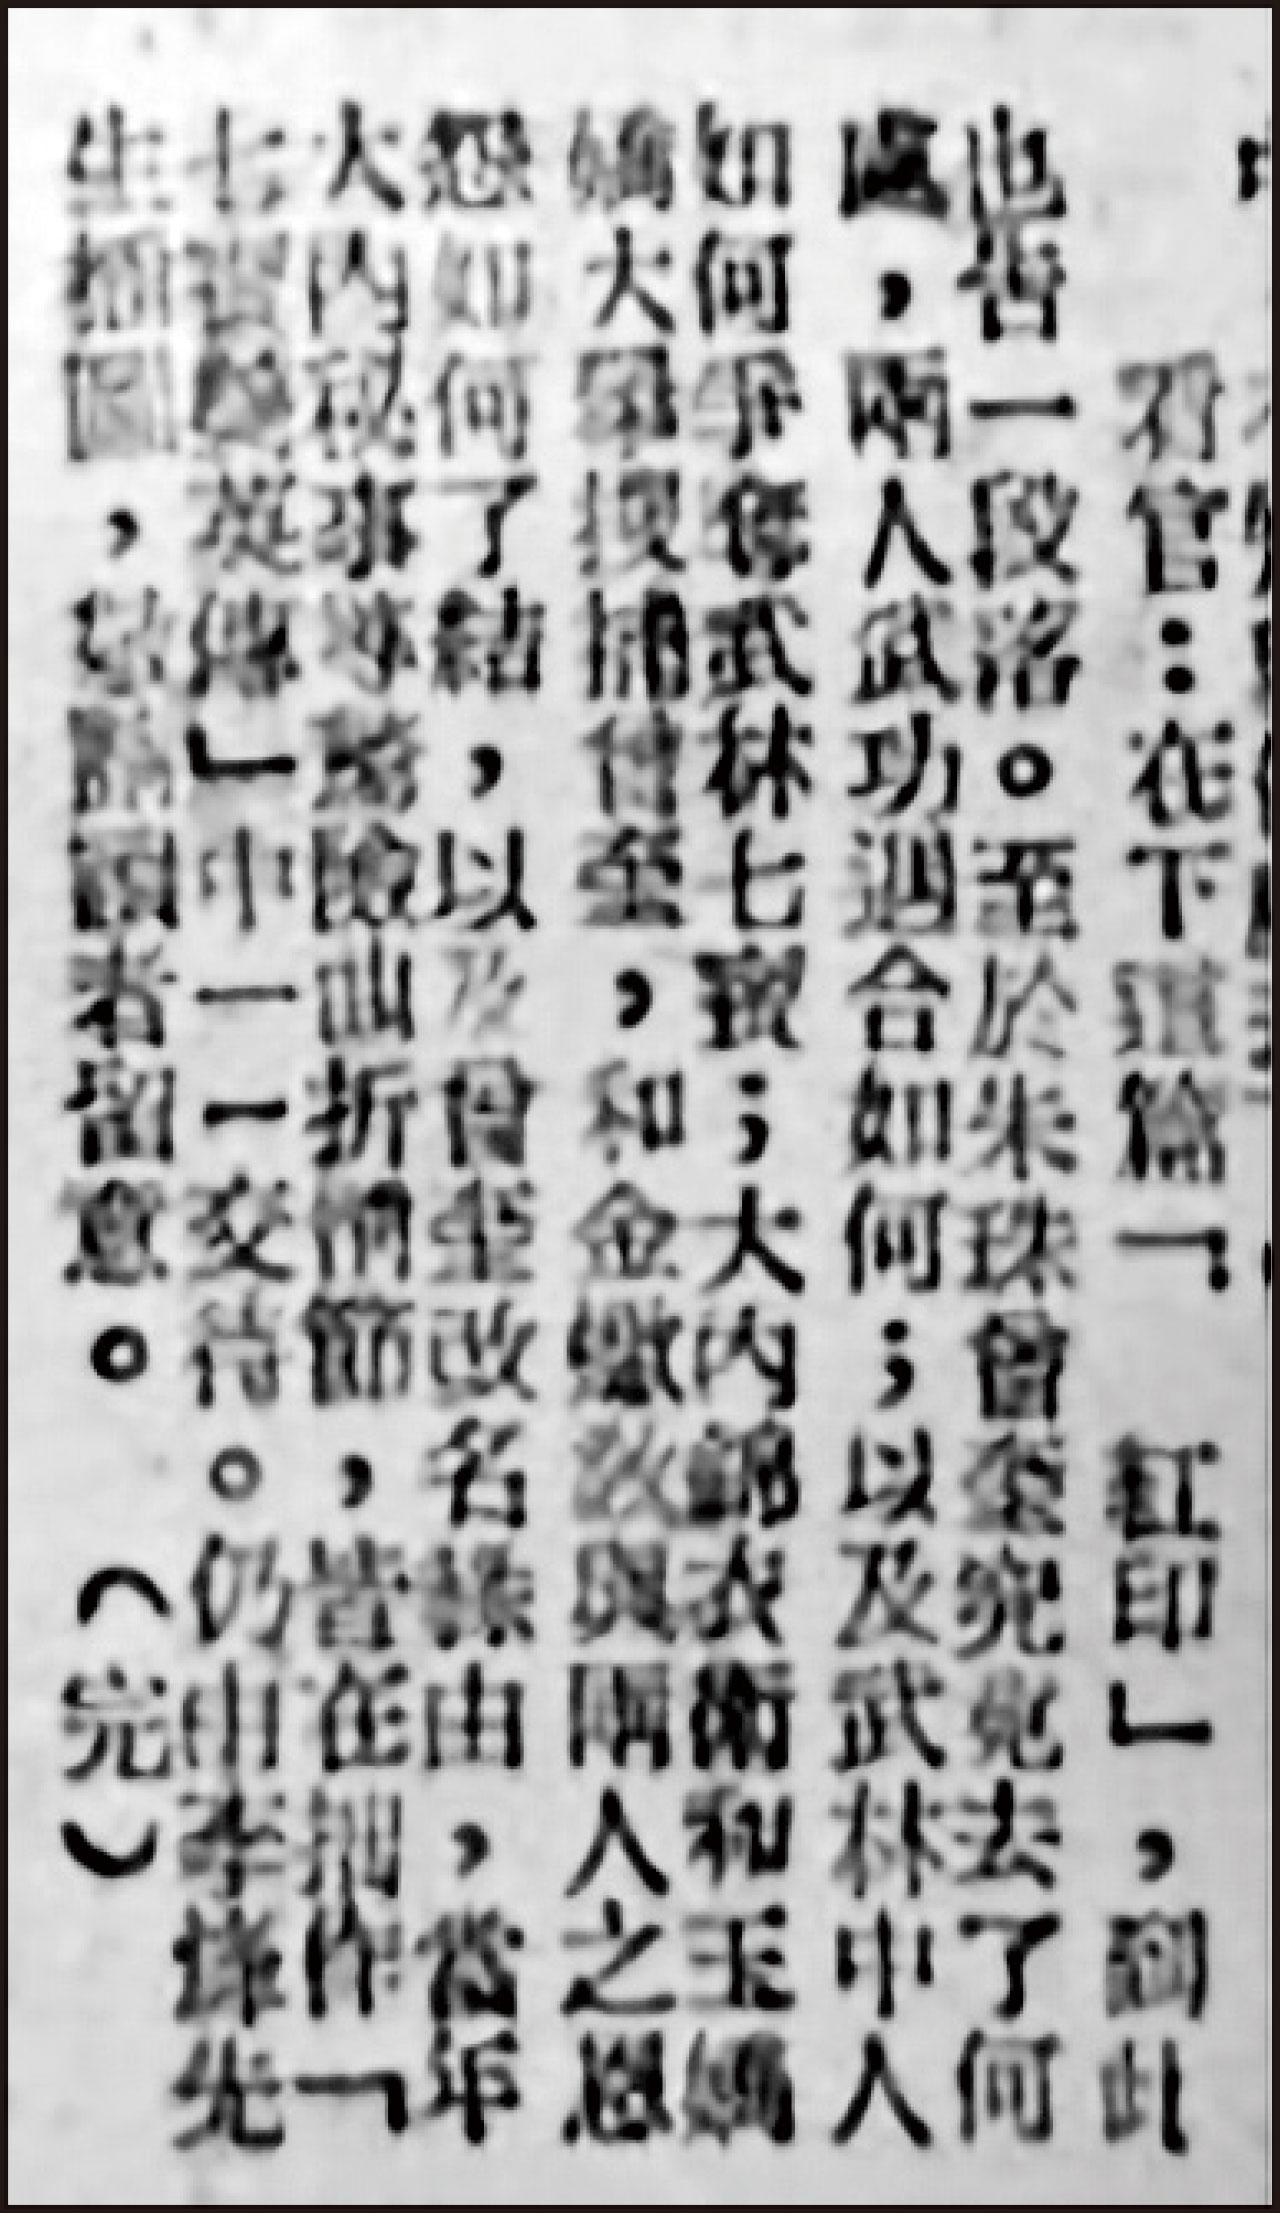 看官：在下這篇「　紅印」，到此
也告一段落。至於朱珠曾至究竟去了何
處，兩人武功遇合如何；以及武林中人
如何爭奪武林七寶；大內錦衣衛和玉嬌
嬌大舉搜捕曾至，和金 以及與兩人之恩
怨如何了結，以及曾至改名 由，當年
大內秘事等驚險曲折情節，皆在拙作「
七 」中一一交待。仍由李 先
生 圖， 請讀者留意。（完）